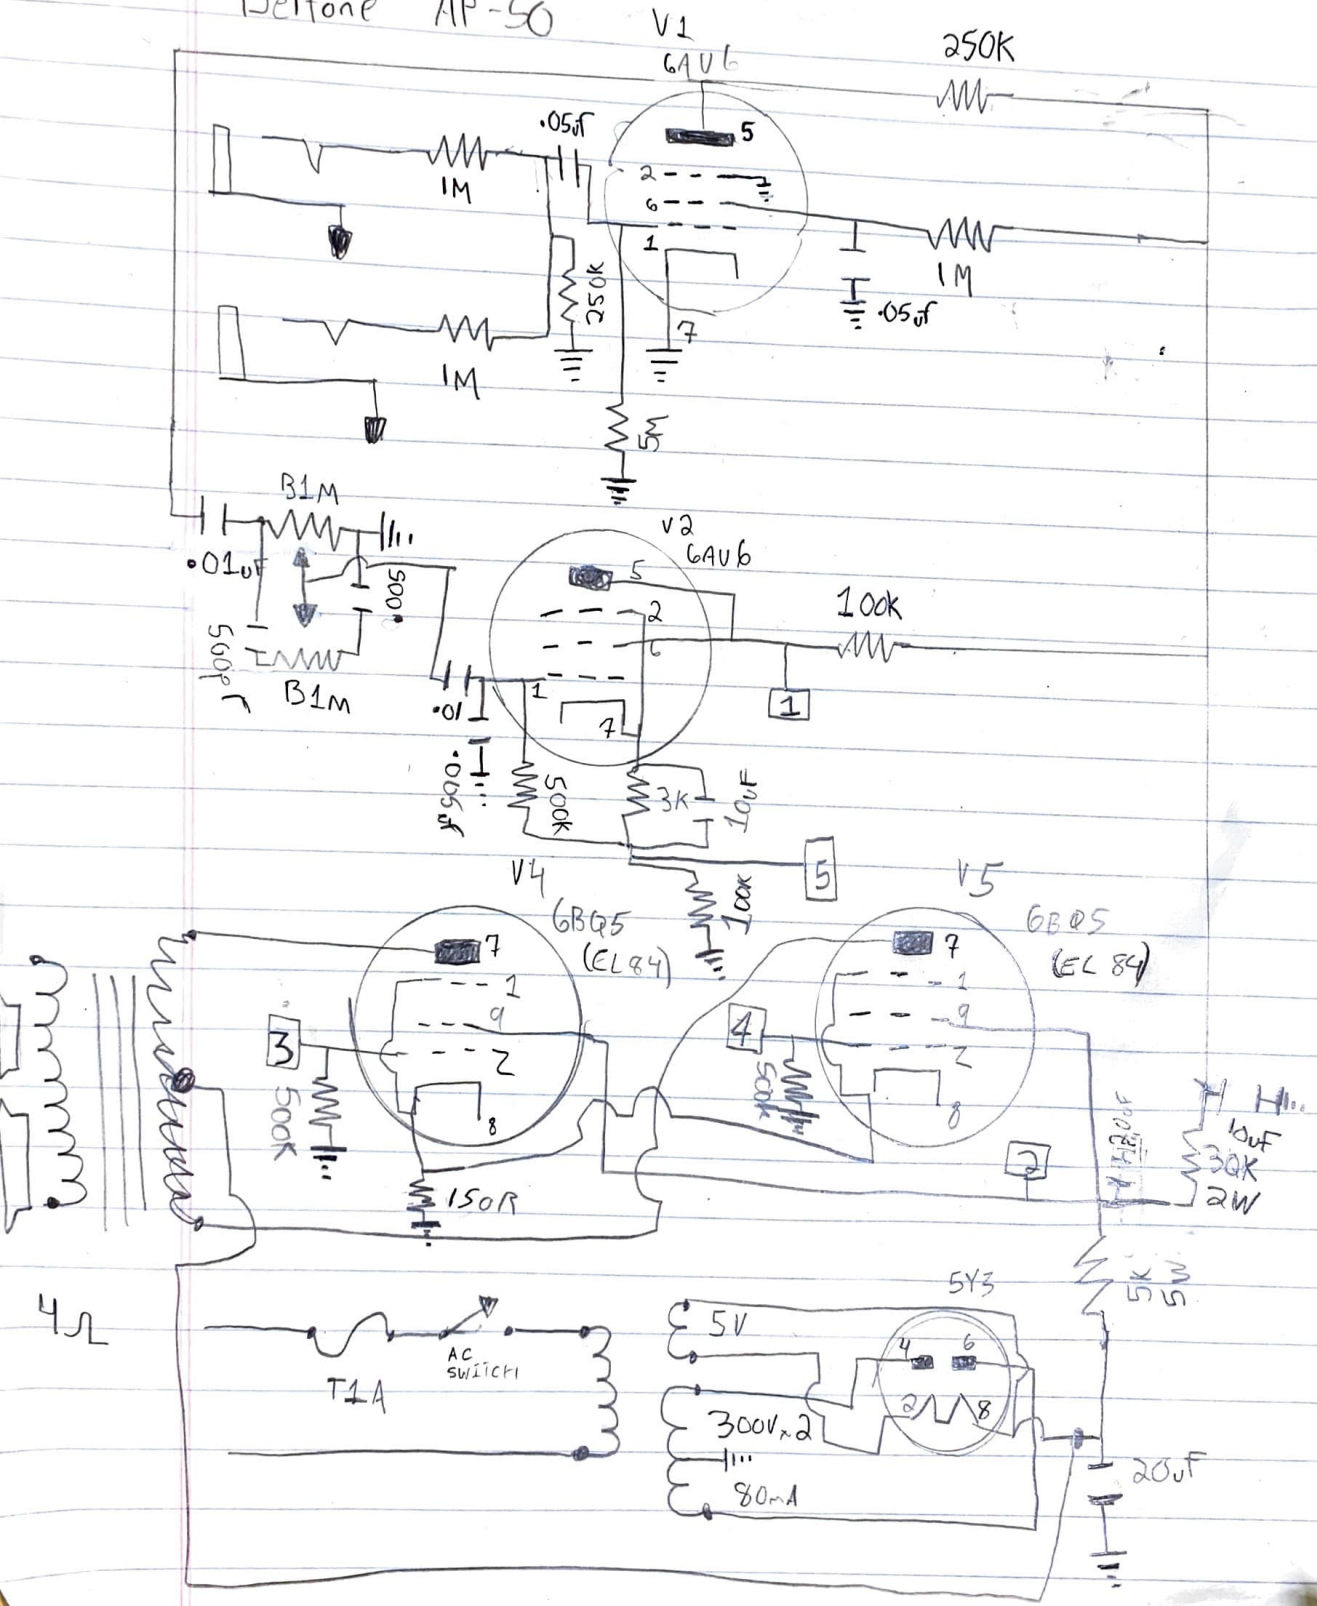 Beltone AP-50
V1
6AU6
250K
.05uf
5
2
6
1
7
1M
250K
1M
.05uf
1M
5M
B1M
.01uF
.005
500pF
B1M
V2
6AU6
5
2
6
1
7
100K
1
.01
.005uf
500K
3K
10uF
5
100K
V4
6BQ5
(EL84)
7
1
9
2
8
3
500K
150R
V5
6BQ5
(EL84)
7
1
9
2
8
4
500K
2
10uF
30K
2W
5K
5W
4Ω
T1A
AC
SWITCH
5V
300V x 2
80mA
5Y3
4
6
2
8
20uF